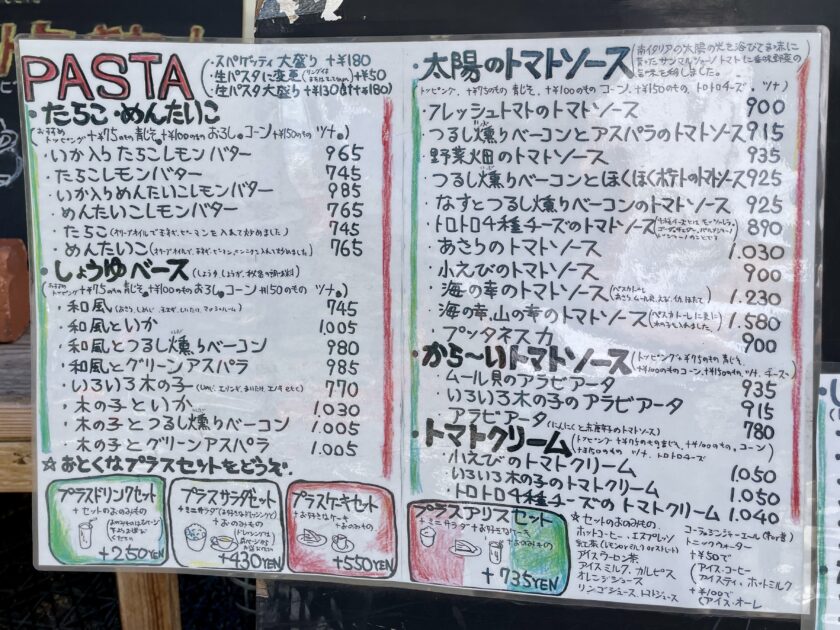 PASTA
・スパゲッティ大盛り +¥180
・生パスタに変更 +¥50
・生パスタ大盛り +¥130 (計¥180)
・たらこ・めんたいこ
(おすすめトッピング +¥75のもの 青じそ。+¥100のもの おろし。コーン +¥150のもの ツナ。)
・いか入りたらこレモンバター 965
・たらこレモンバター 745
・いか入りめんたいこレモンバター 985
・めんたいこレモンバター 765
・たらこ 745
・めんたいこ 765
・しょうゆベース
(おすすめトッピング +¥75のもの 青じそ。+¥100のもの おろし。コーン +¥150のもの ツナ。)
・和風 745
・和風といか 1.005
・和風とつるし燻りベーコン 980
・和風とグリーンアスパラ 985
・いろいろ木の子 770
・木の子といか 1.030
・木の子とつるし燻りベーコン 1.005
・木の子とグリーンアスパラ 1.005
☆おとくなプラスセットをどうぞ。
プラスドリンクセット
+セットのおのみもの
+250YEN
プラスサラダセット
+ミニサラダ
+おのみもの
+430YEN
プラスケーキセット
+お好きなケーキ
+おのみもの
+550YEN
・太陽のトマトソース
(トッピング、+¥75のもの 青じそ、+¥100のもの コーン、+¥150のもの、トロトロチーズ、ツナ)
・フレッシュトマトのトマトソース 900
・つるし燻りベーコンとアスパラのトマトソース 915
・野菜畑のトマトソース 935
・つるし燻りベーコンとほくほくポテトのトマトソース 925
・なすとつるし燻りベーコンのトマトソース 925
・トロトロ4種チーズのトマトソース 890
・あさりのトマトソース 1.030
・小えびのトマトソース 900
・海の幸のトマトソース 1.230
・海の幸、山の幸のトマトソース 1.580
・プッタネスカ 900
・から〜いトマトソース
(トッピング +¥75のもの 青じそ、+¥100のもの コーン、+¥150のもの、ツナ、チーズ)
・ムール貝のアラビアータ 935
・いろいろ木の子のアラビアータ 915
・アラビアータ (にんにくと赤唐辛子のトマトソース) 780
・トマトクリーム
・小えびのトマトクリーム 1.050
・いろいろ木の子のトマトクリーム 1.050
・トロトロ4種チーズのトマトクリーム 1.040
プラスアリスセット
+ミニサラダ+お好きなケーキ
+おのみもの
+735YEN
☆セットのおのみもの、
ホットコーヒー、エスプレッソ
紅茶 (lemon or milk or ストレート)
アイスウーロン茶
アイスミルク、カルピス
オレンジジュース
リンゴジュース、トマトジュース
トニックウォーター
+¥50で
(アイス・コーヒー
(アイスティ、ホットミルク
+¥100で
(アイス・オーレ